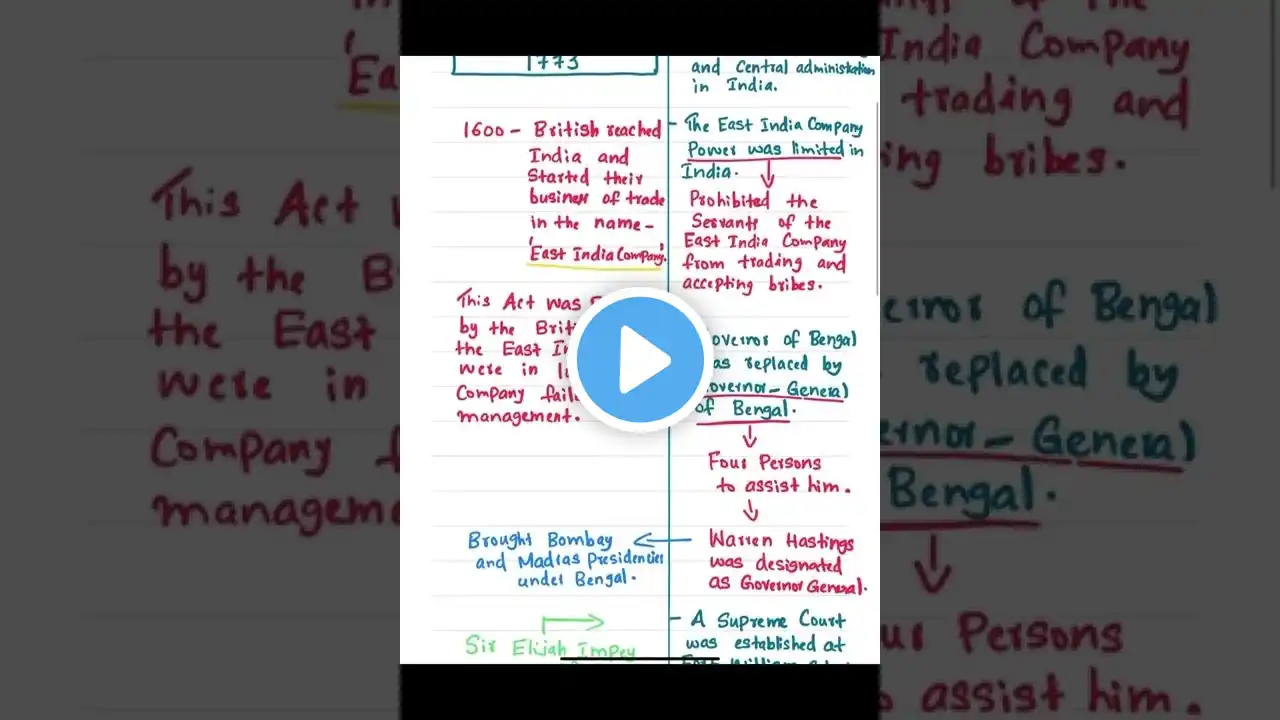 1773
1600 - British reached
India and
Started their
business of trade
in the name -
'East India Company'.
This Act was
by the Brit
the East In
were in
Company fail
management.
Brought Bombay
and Madras Presidencies
under Bengal.
Sir Elijah Impey
and Central administration
in India.
- The East India Company
Power was limited in
India.
Prohibited the
Servants of the
East India Company
from trading and
accepting bribes.
Governor of Bengal
was replaced by
Governor - General
of Bengal.
Four Persons
to assist him.
Warren Hastings
was designated
as Governor General.
- A Supreme Court
was established at